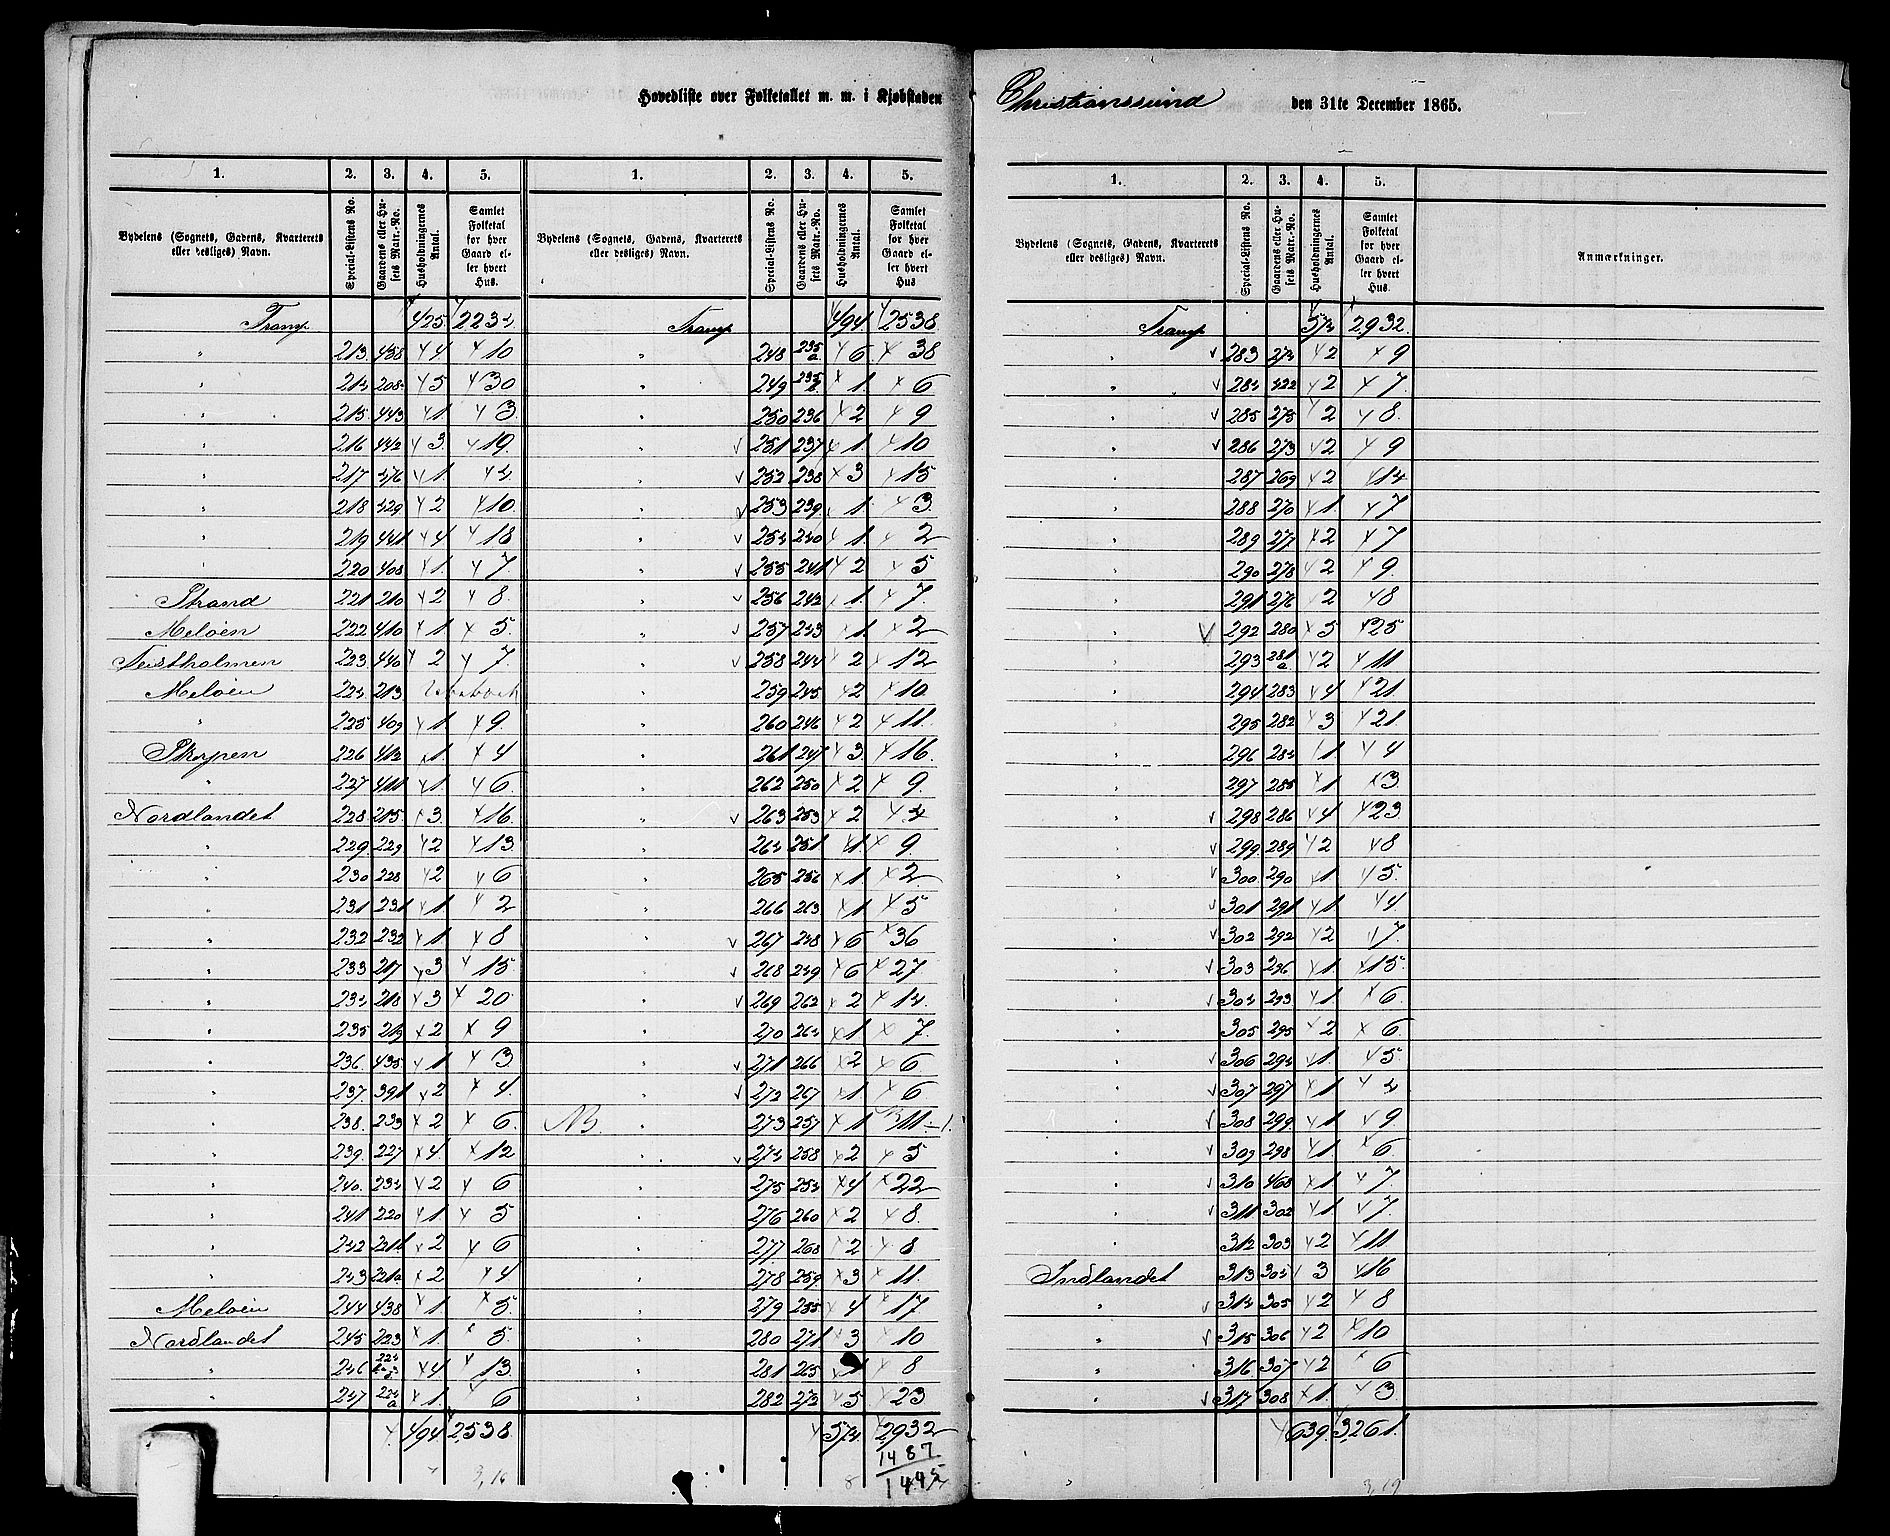 Hovedliste over Folketallet m. m. i Kjøbstaden Christianssund den 31te December 1865.
1. 2. 3. 4. 5. 1. 2. 3. 4. 5. 1. 2. 3. 4. 5.
Bydelens (Sognets, Gadens, Kvarterets eller desliges) Navn. Special-Listens No. Gaardens eller Husets Matr.-No. Husholdningernes Antal. Samlet Folketal for hver Gaard eller hvert Hus.
Bydelens (Sognets, Gadens, Kvarterets eller desliges) Navn. Special-Listens No. Gaardens eller Husets Matr.-No. Husholdningernes Antal. Samlet Folketal for hver Gaard eller hvert Hus
Bydelens (Sognets, Gadens, Kvarterets eller desliges) Navn. Special-Listens No. Gaardens eller Husets Matr.-No. Husholdningernes Antal. Samlet Folketal for hver Gaard eller hvert Hus. Anmærkninger.
Transp 425 2234
" 213 458 4 10
" 214 208 5 30
" 215 443 1 3
" 216 442 3 19
" 217 476 1 4
" 218 429 2 10
" 219 441 4 18
" 220 408 1 7
Strand 221 210 2 8
Meløen 222 410 1 5
Feistholmen 223 440 2 7
Meløen 224 213
" 225 409 1 9
Skorpen 226 412 1 4
" 227 411 1 6
Nordlandet 228 215 3 16
" 229 229 2 13
" 230 228 2 6
" 231 231 1 2
" 232 232 1 8
" 233 217 3 15
" 234 218 3 20
" 235 219 2 9
" 236 435 1 3
" 237 391 2 4
" 238 233 2 6
" 239 227 4 12
" 240 234 2 6
" 241 220 1 5
" 242 221b 2 6
" 243 221a 2 4
Meløen 244 438 1 5
Nordlandet 245 223 1 5
" 246 4 13
" 247 224a 1 6
494 2538
3,16
Transp 494 2538
" 248 235a 6 38
" 249 235b 1 6
" 250 236 2 9
" 251 237 1 10
" 252 238 3 15
" 253 239 1 3
" 254 240 1 2
" 255 241 2 5
" 256 242 1 7
" 257 243 1 2
" 258 244 2 12
" 259 245 2 10
" 260 246 2 11
" 261 247 3 16
" 262 250 2 9
" 263 253 2 4
" 264 251 1 9
" 265 256 1 2
" 266 263 1 5
" 267 248 6 36
" 268 249 6 27
" 269 262 2 14
" 270 264 1 7
" 271 266 2 6
" 272 267 1 6
NB. " 273 257 1 11 – 1.
" 274 258 2 5
" 275 254 4 22
" 276 260 2 8
" 277 268 2 8
" 278 259 3 11
" 279 255 4 17
" 280 271 3 10
" 281 265 8
" 282 272 5 23
574 2932
1487
1445
Transp 574 2932
" 283 274 2 9
" 284 422 2 7
" 285 275 2 8
" 286 273 2 9
" 287 269 2 14
" 288 270 1 7
" 289 277 2 7
" 290 278 2 9
" 291 276 2 8
" 292 280 5 25
" 293 281a 2 11
" 294 283 4 21
" 295 282 3 21
" 296 284 1 4
" 297 285 1 3
" 298 286 4 23
" 299 289 2 8
" 300 290 1 5
" 301 291 1 4
" 302 292 2 7
" 303 296 1 15
" 304 293 1 6
" 305 295 2 6
" 306 294 1 5
" 307 297 1 4
" 308 299 1 9
" 309 298 1 6
" 310 468 1 7
" 311 302 1 7
" 312 303 2 11
Indlandet 313 304 3 16
" 314 305 2 8
" 315 306 2 10
" 316 307 2 6
" 317 308 1 3
639 3261
3,19